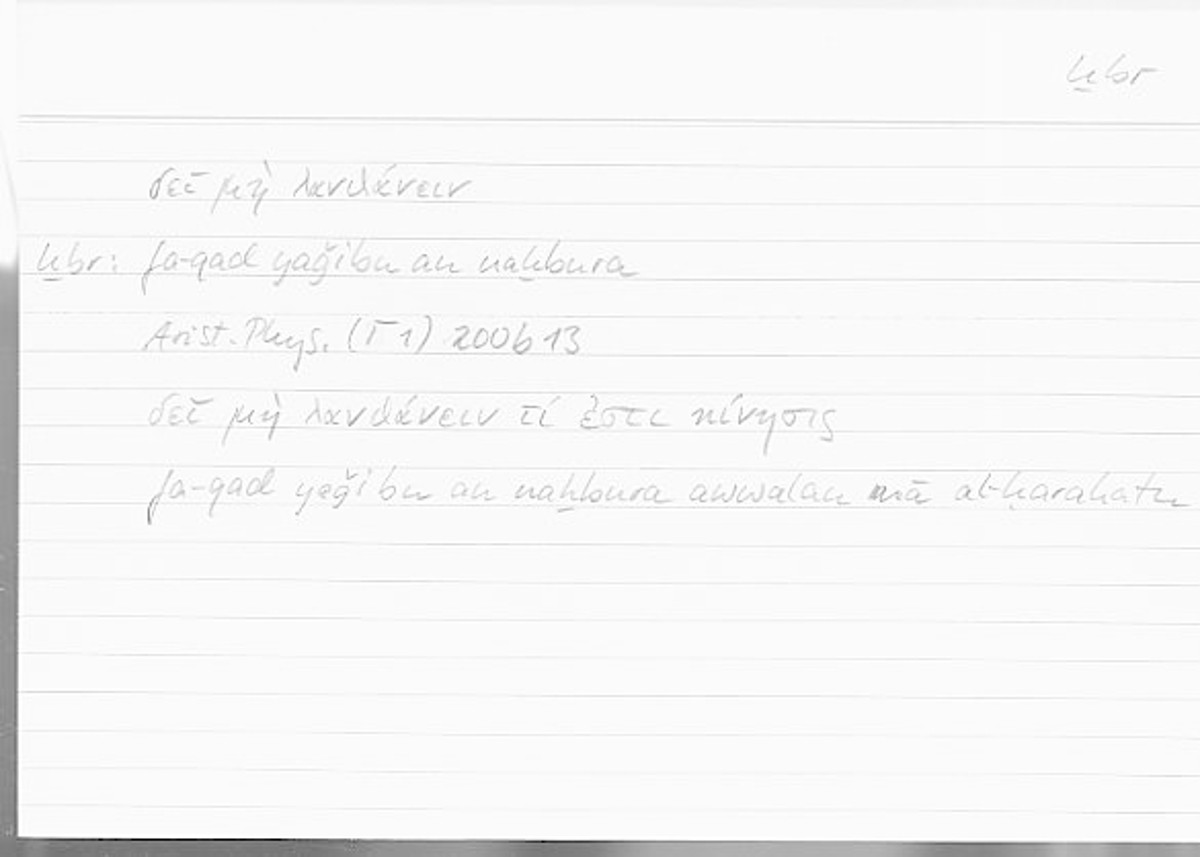 ḫbr
δεῖ μὴ λανθάνειν
ḫbr: fa-qad yaǧibu an naḫbura
Arist. Phys. (Γ 1) 200b13
δεῖ μὴ λανθάνειν τί ἐστι κίνησις
fa-qad yaǧibu an naḫbura awwalan mā al-ḥarakatu